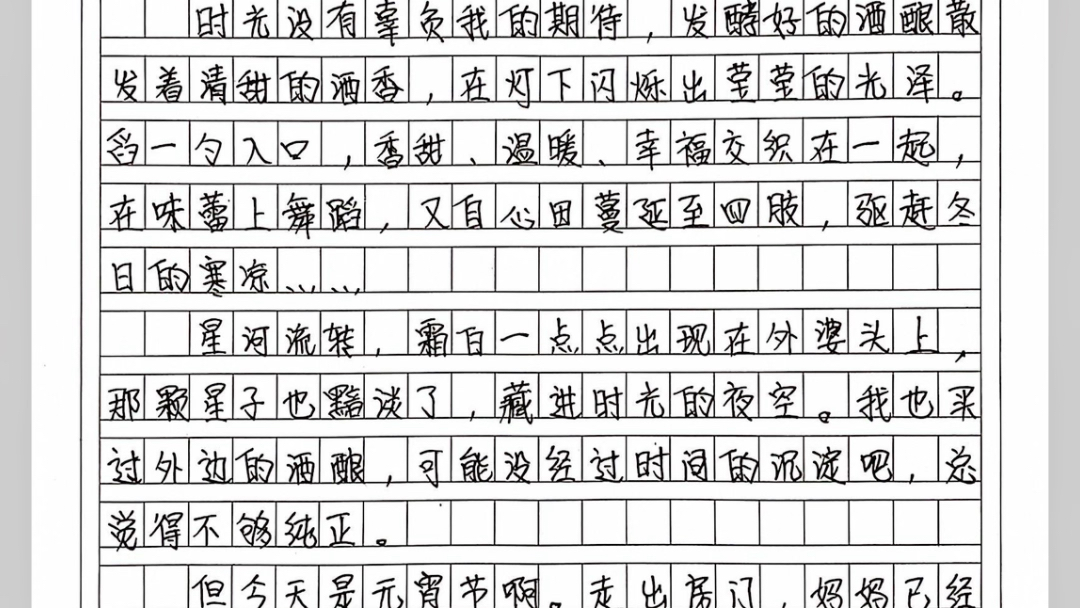 时光没有辜负我的期待，发酵好的酒酿散
发着清甜的酒香，在灯下闪烁出莹莹的光泽。
舀一勺入口，香甜、温暖、幸福交织在一起，
在味蕾上舞蹈，又自心田蔓延至四肢，驱赶冬
日的寒凉……
星河流转，霜白一点点出现在外婆头上，
那颗星子也黯淡了，藏进时光的夜空。我也买
过外边的酒酿，可能没经过时间的沉淀吧，总
觉得不够纯正。
但今天是元宵节啊。走出房门，妈妈已经